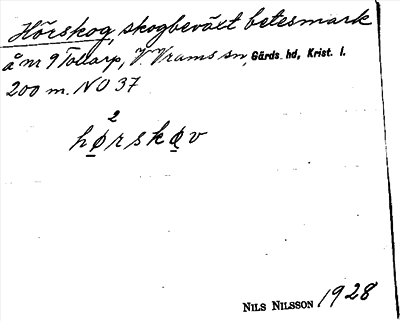 Hörskog, skogbeväxt betesmark
å nr 9 Tollarp, V. Vrams sn, Gärds hd, Krist. l.
200 m. NO 37
2
hørskøv
NILS NILSSON 1928